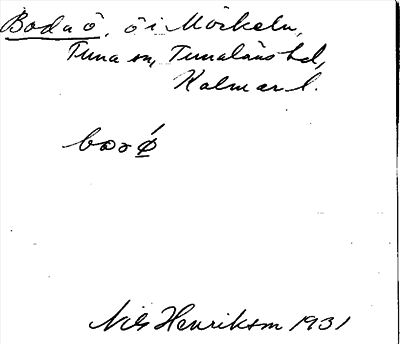 Boda ö, ö i Mörkeln,
Tuna sn, Tunaläns hd,
Kalmar l.
Nils Henrikson 1931